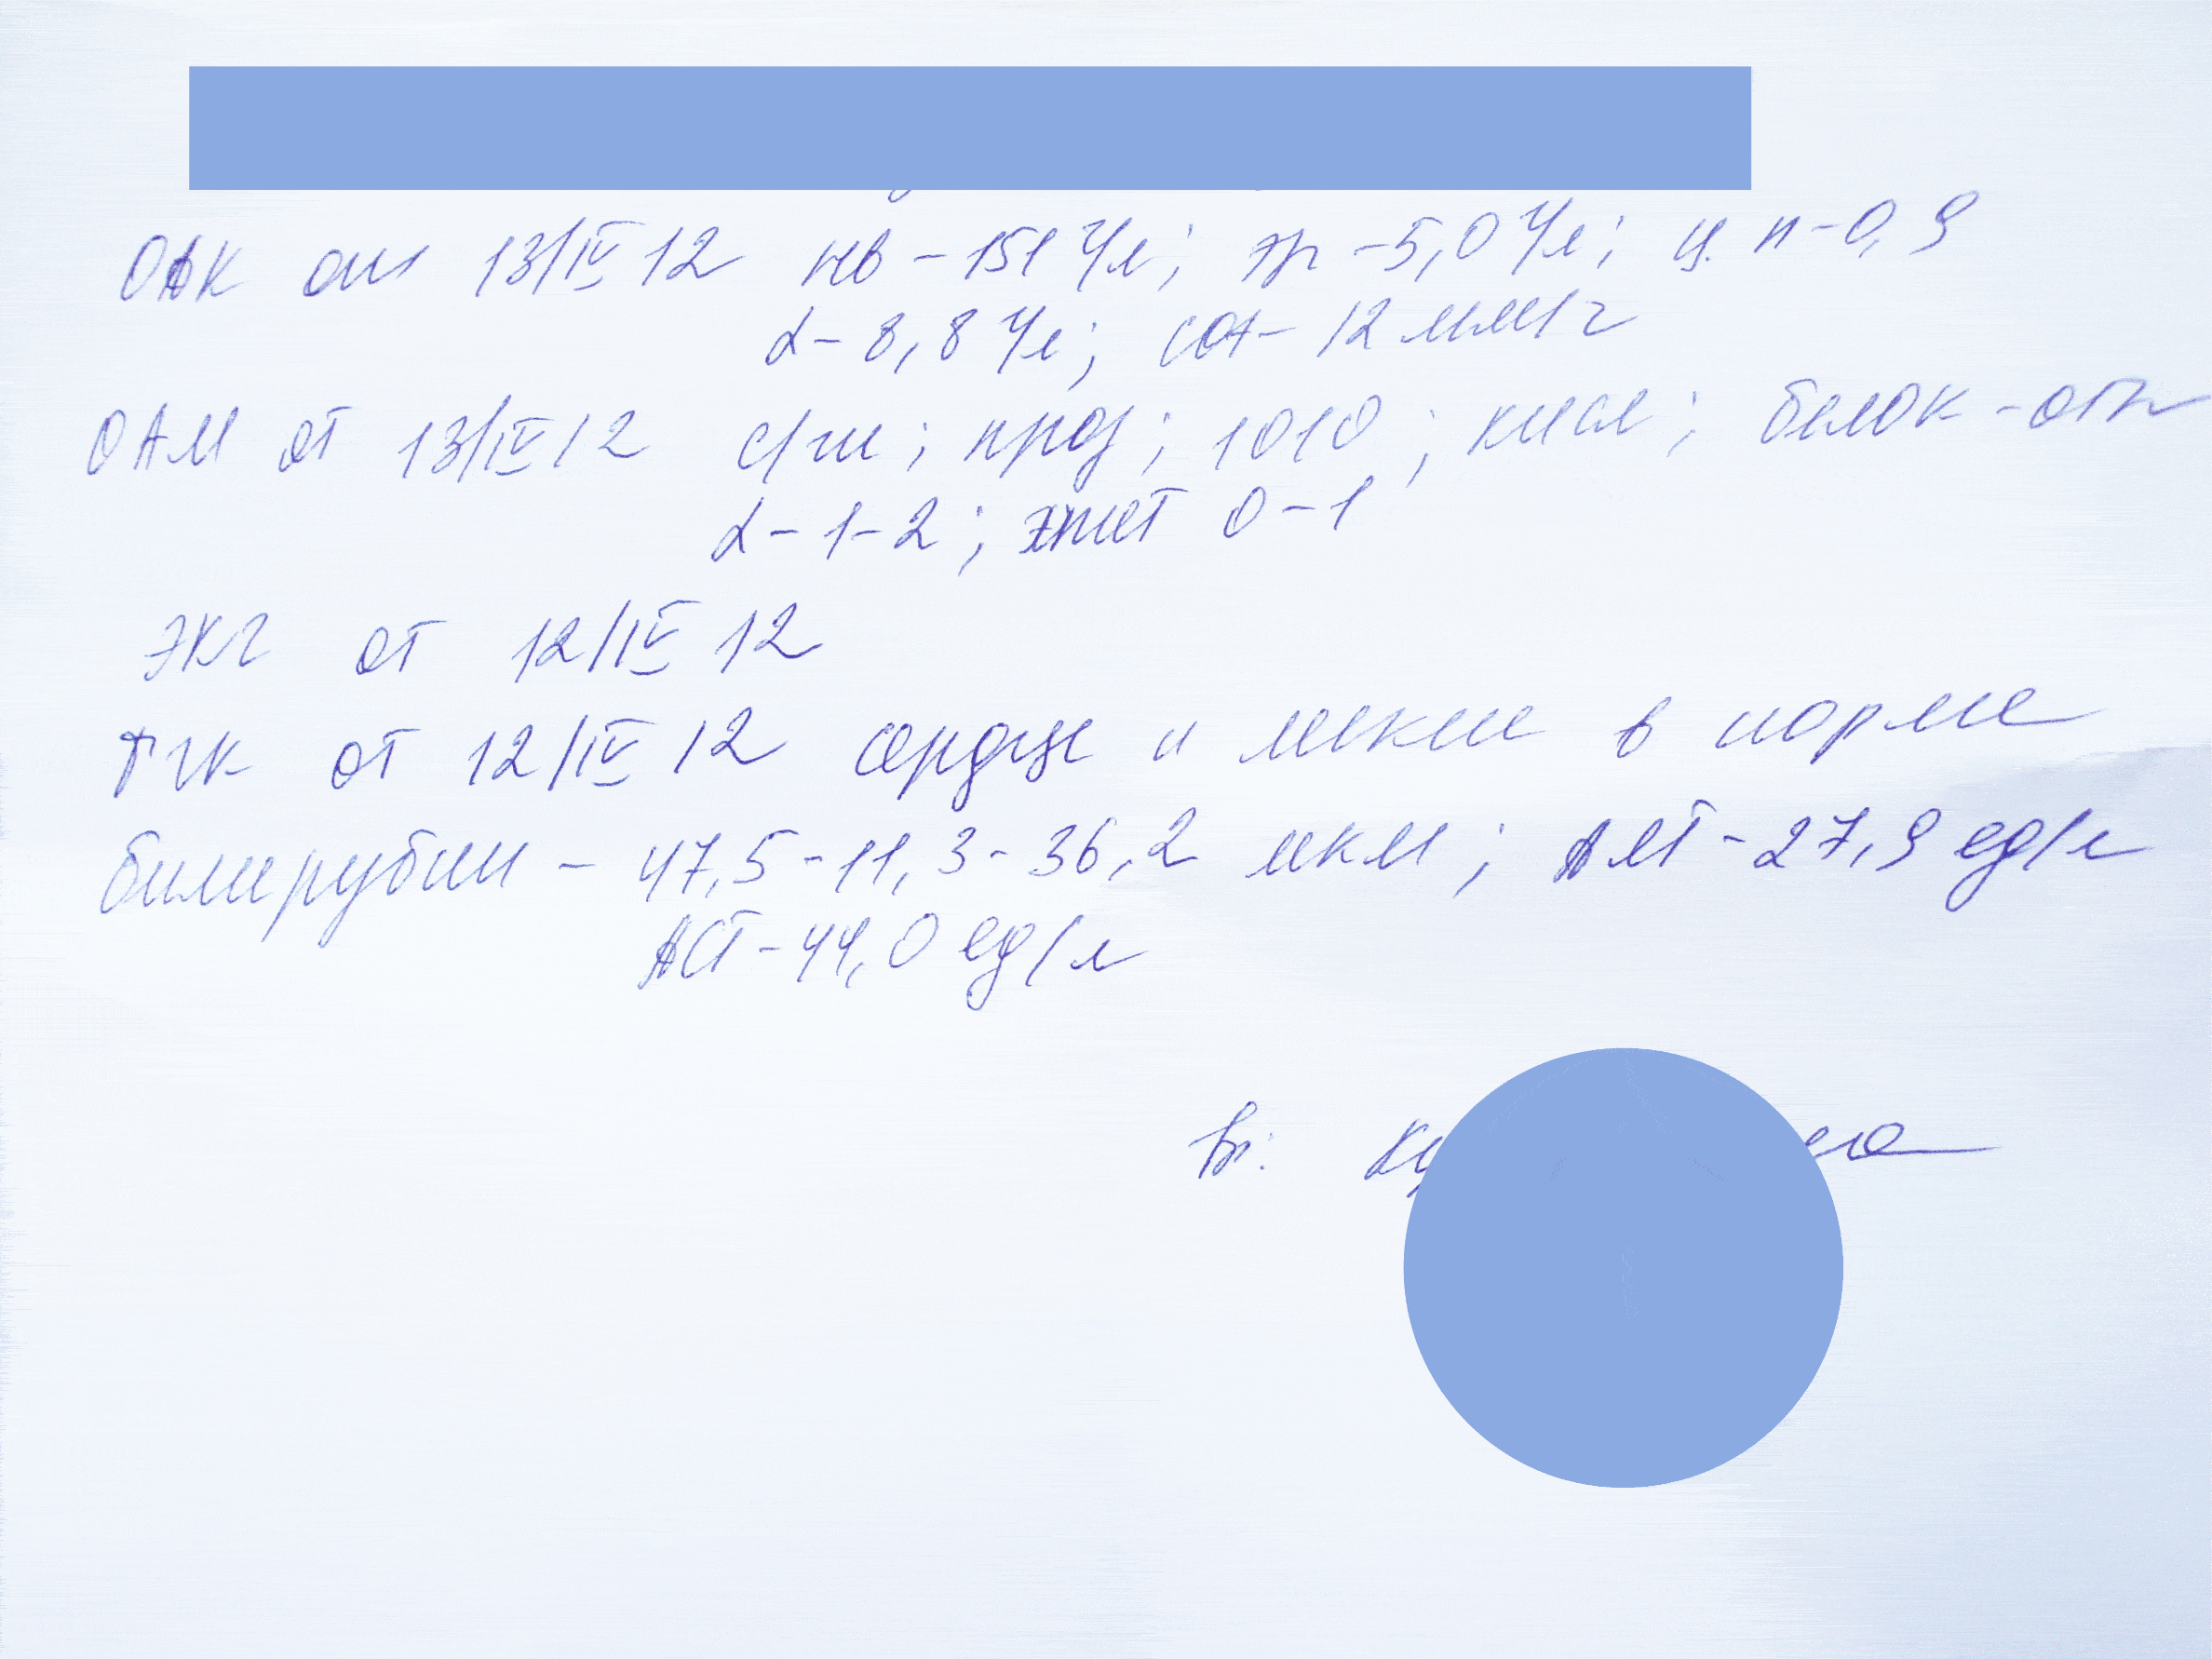 ОАК от 13/IV 12 Нв - 151 г/л; эр - 5,0 г/л; ц.п - 0,9
L - 8,8 г/л; соэ - 12 мм/г
ОАМ от 13/IV 12 с/ж; проз; 1010; кисл; белок - отр
L - 1-2; эпит 0-1
ЭКГ от 12/IV 12
ГК от 12/IV 12 сердце и легкие в норме
билирубин - 47,5 - 11,3 - 36,2 мкм; АЛТ - 27,9 ед/л
АСТ - 44,0 ед/л
Вр: